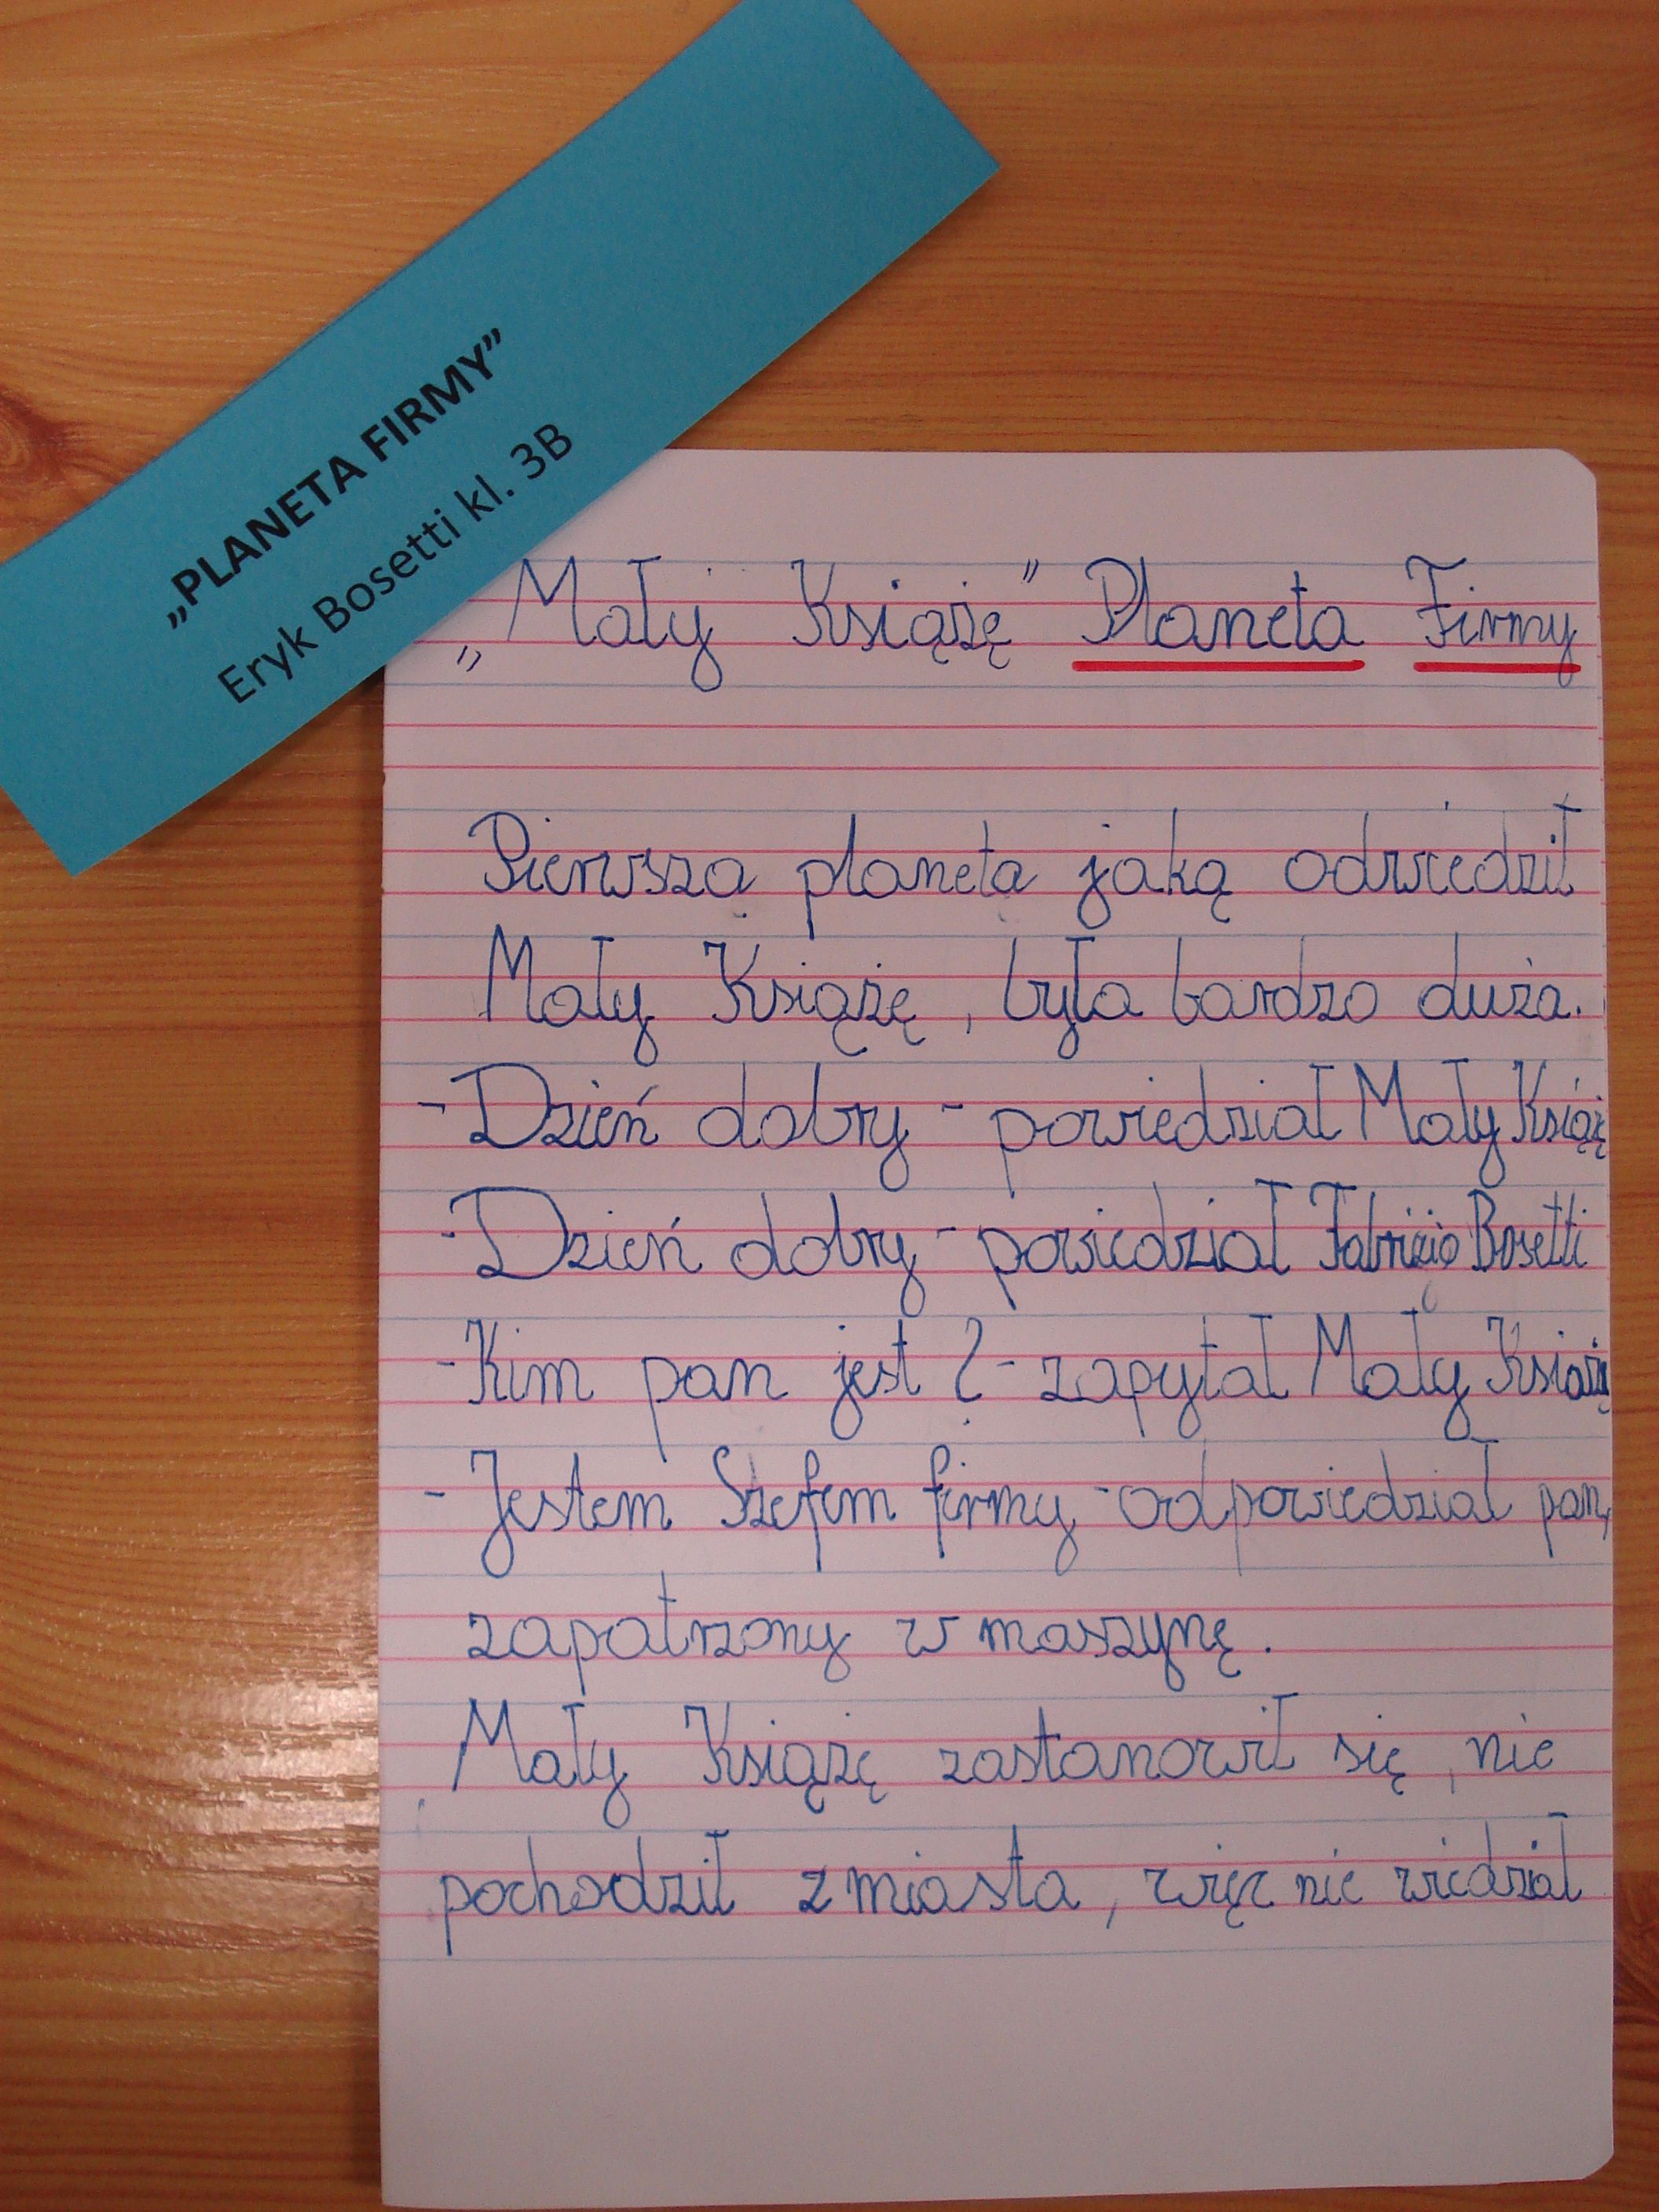 „PLANETA FIRMY”
Eryk Bosetti kl. 3B
„Mały Książę” Planeta Firmy
Pierwsza planeta jaką odwiedził
Mały Książę, była bardzo duża.
- Dzień dobry - powiedział Mały Książę
- Dzień dobry - powiedział Fabrizio Bosetti
- Kim pan jest ? - zapytał Mały Książę
- Jestem Szefem firmy - odpowiedział pan,
zapatrzony w maszynę.
Mały Książę zastanowił się, nie
pochodził z miasta, więc nie wiedział